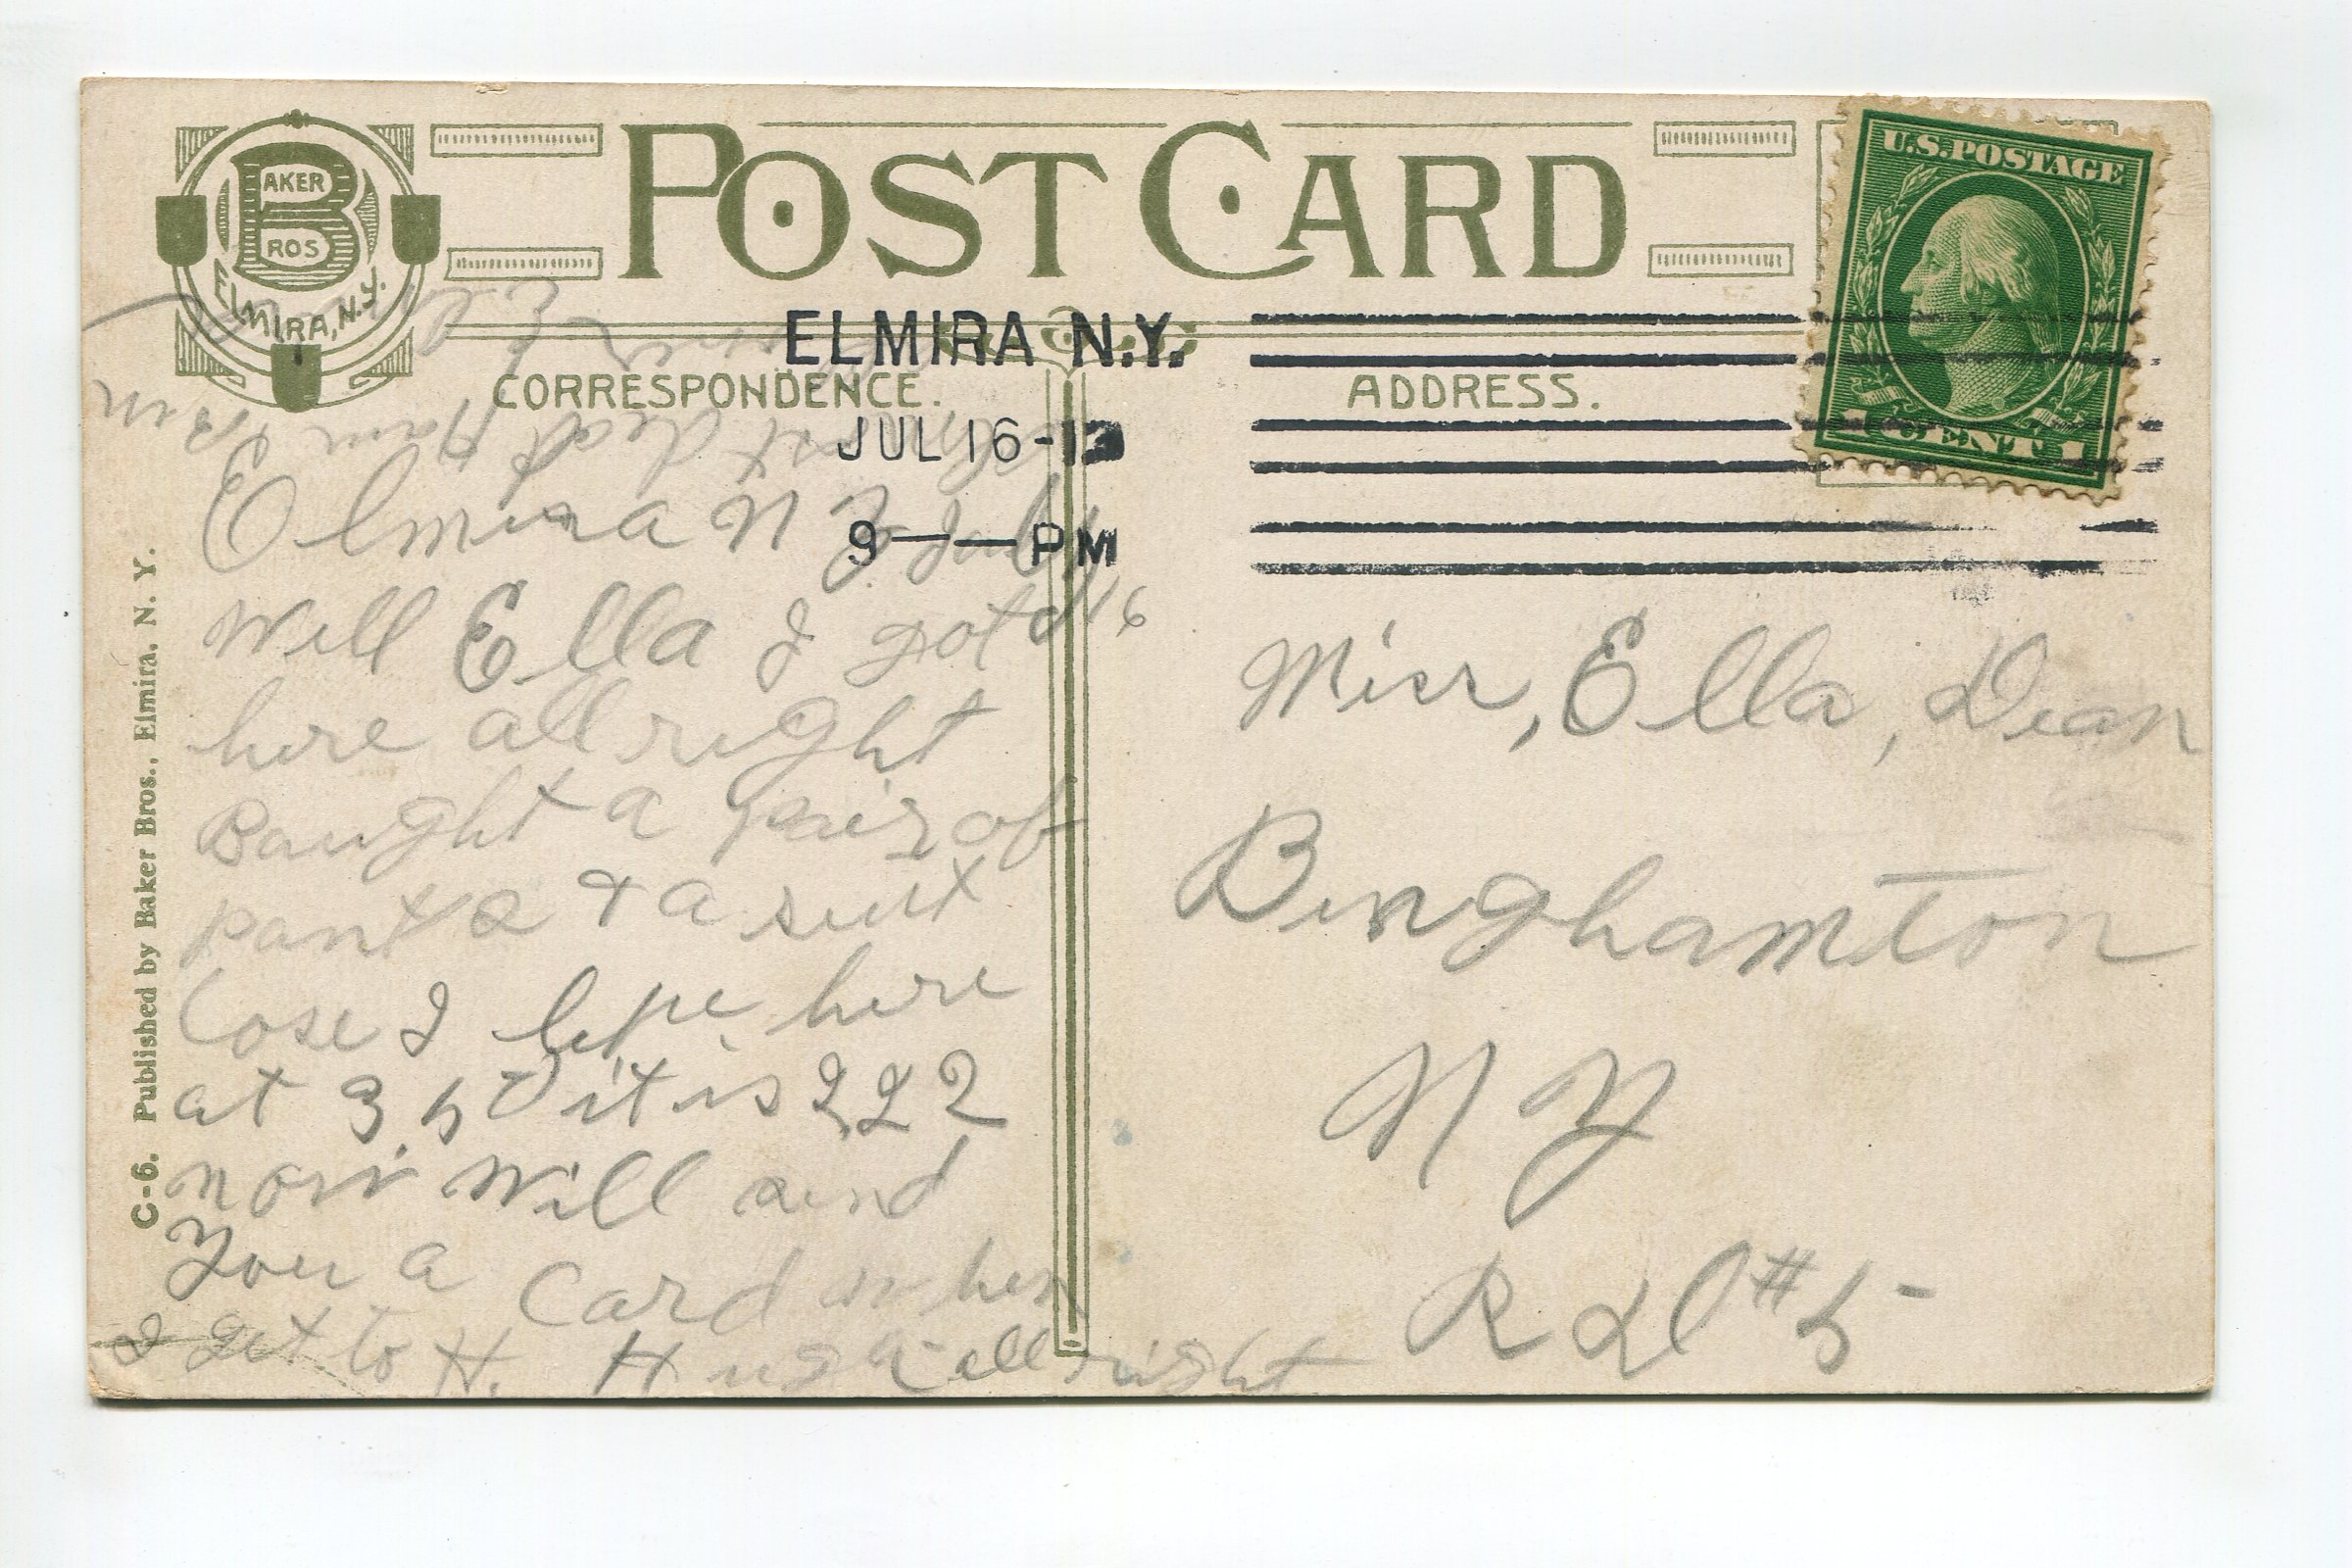 BAKER
BROS
ELMIRA, N.Y.
POST CARD
U.S. POSTAGE
1 CENT 1
ELMIRA N.Y.
JUL 16-13
9 — PM
CORRESPONDENCE.
ADDRESS.
Elmira N Y July 16
Well Ella I got
here all right
Baught a pair of
pants & a suit
Cose I here
at 3.50 it is 222
now will send
You a Card when
I get to H. H all right
Miss, Ella, Dean
Binghamton
N Y
R D #5-
C-6. Published by Baker Bros., Elmira, N. Y.